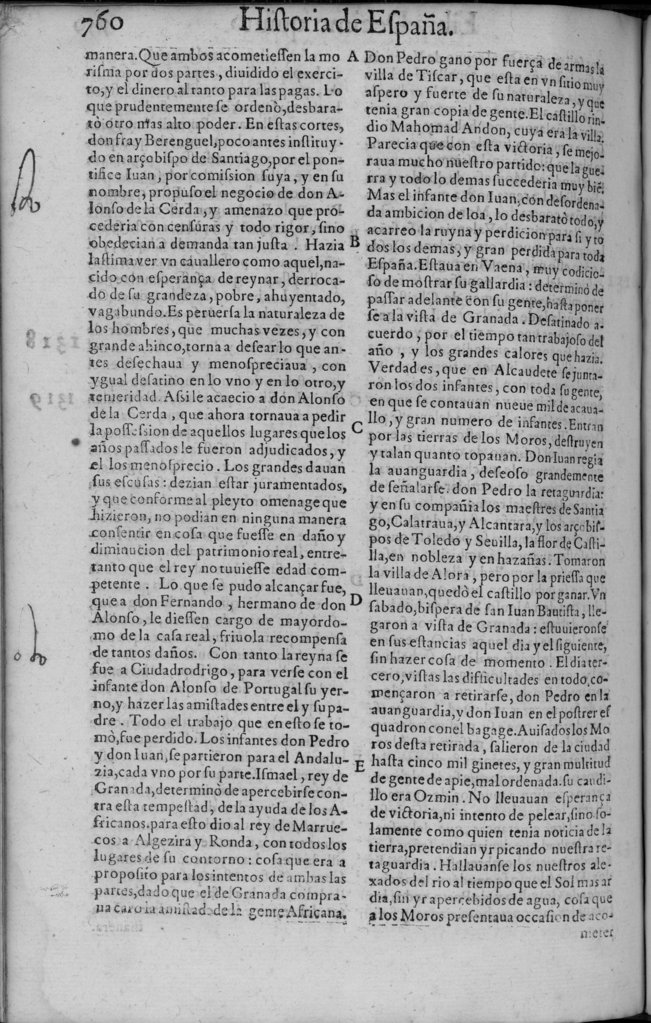 760 Historia de España.
manera. Que ambos acometiessen la mo
risma por dos partes, diuidido el exerci-
to, y el dinero al tanto para las pagas. Lo
que prudentemente se ordenò, desbara-
tò otro mas alto poder. En estas cortes,
don fray Berenguel, poco antes instituy-
do en arçobispo de Santiago, por el pon-
tifice Iuan, por comission suya, y en su
nombre, propuso el negocio de don A-
lonso de la Cerda, y amenazo que pro-
cederia con censuras y todo rigor, sino
obedecian a demanda tan justa. Hazia
lastima ver vn cauallero como aquel, na-
cido con esperança de reynar, derroca-
do de su grandeza, pobre, ahuyentado,
vagabundo. Es peruersa la naturaleza de
los hombres, que muchas vezes, y con
grande ahinco, torna a desear lo que an-
tes desechaua y menospreciaua, con
ygual desatino en lo vno y en lo otro, y
temeridad. Assi le acaecio a don Alonso
de la Cerda, que ahora tornaua a pedir
la possession de aquellos lugares que los
años passados le fueron adjudicados, y
el los menosprecio. Los grandes dauan
sus escusas: dezian estar juramentados,
y que conforme al pleyto omenage que
hizieron, no podian en ninguna manera
consentir en cosa que fuesse en daño y
diminucion del patrimonio real, entre-
tanto que el rey no tuuiesse edad com-
petente. Lo que se pudo alcançar fue,
que a don Fernando, hermano de don
Alonso, le diessen cargo de mayordo-
mo de la casa real, friuola recompensa
de tantos daños. Con tanto la reyna se
fue a Ciudadrodrigo, para verse con el
infante don Alonso de Portugal su yer-
no, y hazer las amistades entre el y su pa-
dre. Todo el trabajo que en esto se to-
mò, fue perdido. Los infantes don Pedro
y don Iuan, se partieron para el Andalu-
zia, cada vno por su parte. Ismael, rey de
Granada, determinò de apercebirse con-
tra esta tempestad, de la ayuda de los A-
fricanos. para esto dio al rey de Marrue-
cos a Algezira y Ronda, con todos los
lugares de su contorno: cosa que era a
proposito para los intentos de ambas las
partes, dado que el de Granada compra-
ua caro la amistad de la gente Africana.
A
B
C
D
E
Don Pedro gano por fuerça de armas la
villa de Tiscar, que esta en vn sitio muy
aspero y fuerte de su naturaleza, y que
tenia gran copia de gente. El castillo rin-
dio Mahomad Andon, cuya era la villa.
Parecia que con esta victoria, se mejo-
raua mucho nuestro partido: que la gue-
rra y todo lo demas succederia muy biẽ.
Mas el infante don Iuan, con desordena-
da ambicion de loa, lo desbaratò todo, y
acarreo la ruyna y perdicion para si y to
dos los demas, y gran perdida para toda
España. Estaua en Vaena, muy codicio-
so de mostrar su gallardia: determinò de
passar adelante con su gente, hasta poner
se a la vista de Granada. Desatinado a-
cuerdo, por el tiempo tan trabajoso del
año, y los grandes calores que hazia.
Verdad es, que en Alcaudete se junta-
ron los dos infantes, con toda su gente,
en que se contauan nueue mil de acaua-
llo, y gran numero de infantes. Entran
por las tierras de los Moros, destruyen
y talan quanto topauan. Don Iuan regia
la auanguardia, deseoso grandemente
de señalarse. don Pedro la retaguardia:
y en su compañia los maestres de Santia
go, Calatraua, y Alcantara, y los arçobis-
pos de Toledo y Seuilla, la flor de Casti-
lla, en nobleza y en hazañas. Tomaron
la villa de Alora, pero por la priessa que
lleuauan, quedò el castillo por ganar. Vn
sabado, bispera de san Iuan Bautista, lle-
garon a vista de Granada: estuuieronse
en sus estancias aquel dia y el siguiente,
sin hazer cosa de momento. El dia ter-
cero, vistas las difficultades en todo, co-
mençaron a retirarse, don Pedro en la
auanguardia, y don Iuan en el postrer es
quadron con el bagage. Auisados los Mo
ros desta retirada, salieron de la ciudad
hasta cinco mil ginetes, y gran multitud
de gente de apie, mal ordenada. su caudi-
llo era Ozmin. No lleuauan esperança
de victoria, ni intento de pelear, sino so-
lamente como quien tenia noticia de la
tierra, pretendian yr picando nuestra re-
taguardia. Hallauanse los nuestros ale-
xados del rio al tiempo que el Sol mas ar
dia, sin yr apercebidos de agua, cosa que
a los Moros presentaua occasion de aco-
meter